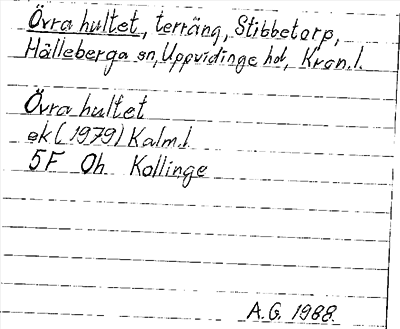 Övra hultet, terräng, Stibbetorp,
Hälleberga sn, Uppvidinge hd, Kron.l.
Övra hultet
ek (1979) Kalm.l
5F Oh Kollinge
A.G. 1988.